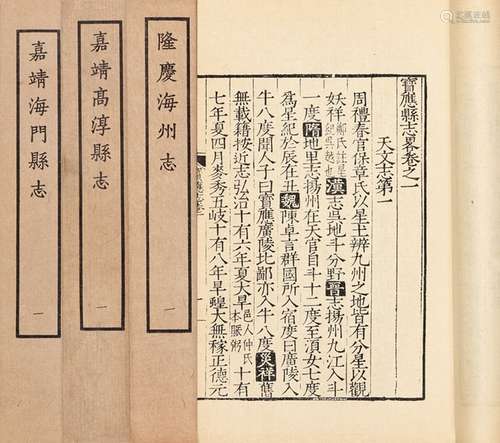 寶應縣志畧卷之一
天文志第一
周禮春官保章氏以星土辨九州之地皆有分星以觀
妖祥鄭氏註星紀吳越也漢志吳地斗分野晉志揚州九江入斗
一度隋地里志揚州在天官自斗十二度至湏女七度
爲星紀於辰在丑魏陳卓言群國所入宿度曰廣陵入
牛八度聞人子曰寶應廣陵比鄙亦入牛八度災祥舊
無載籍按近志弘治十有六年夏大旱邑人仲氏本賑粥十有
七年夏四月麥秀五岐十有八年旱蝗大無稼正德元
隆慶海州志
一
嘉靖高淳縣志
一
嘉靖海門縣志
一